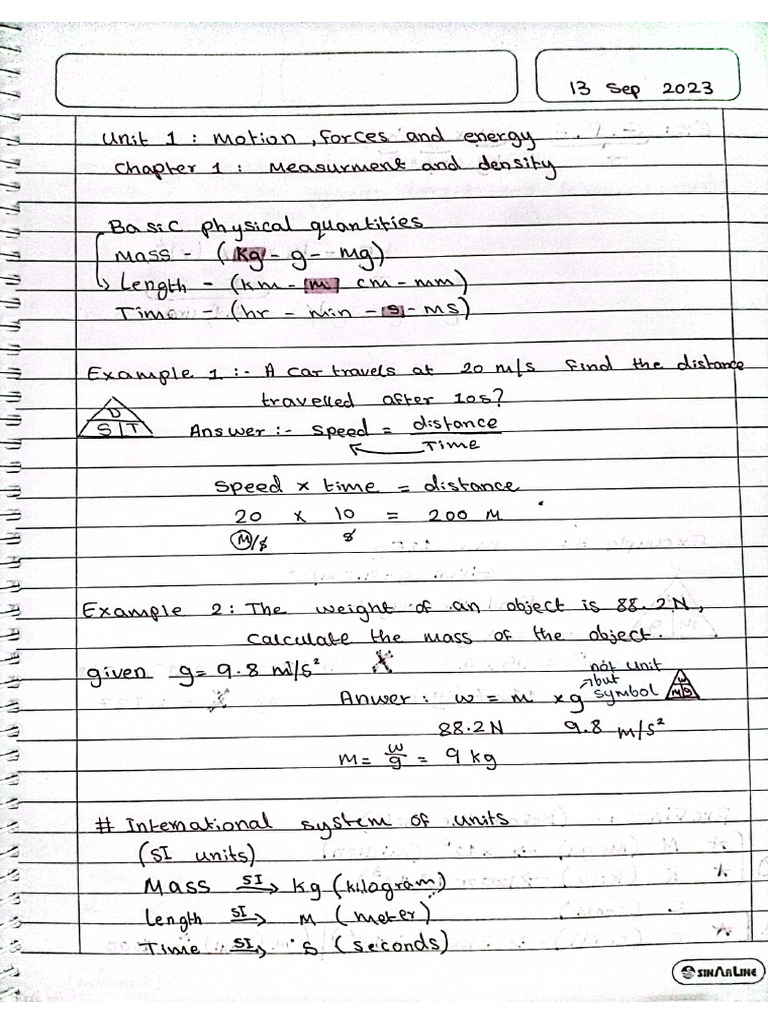 13 Sep 2023
Unit 1 : Motion , forces and energy
Chapter 1 : Measurment and density
Basic physical quantities
Mass - (kg - g - mg)
Length - (km - m cm - mm)
Time - (hr - min - s - ms)
Example 1 :- A car travels at 20 m/s find the distance
travelled after 10s?
D
S T
Answer :- speed = distance
Time
speed x time = distance
20 x 10 = 200 M
M/s s
Example 2 : The weight of an object is 88.2N,
calculate the mass of the object.
given g= 9.8 m/s²
not unit
but
symbol
Anwer : w = m x g
W
M G
88.2N 9.8 m/s²
M = w/g = 9 kg
# International system of units
(SI units)
Mass SI→ kg (kilogram)
Length SI→ M (meter)
Time SI→ s (seconds)
SINARLINE